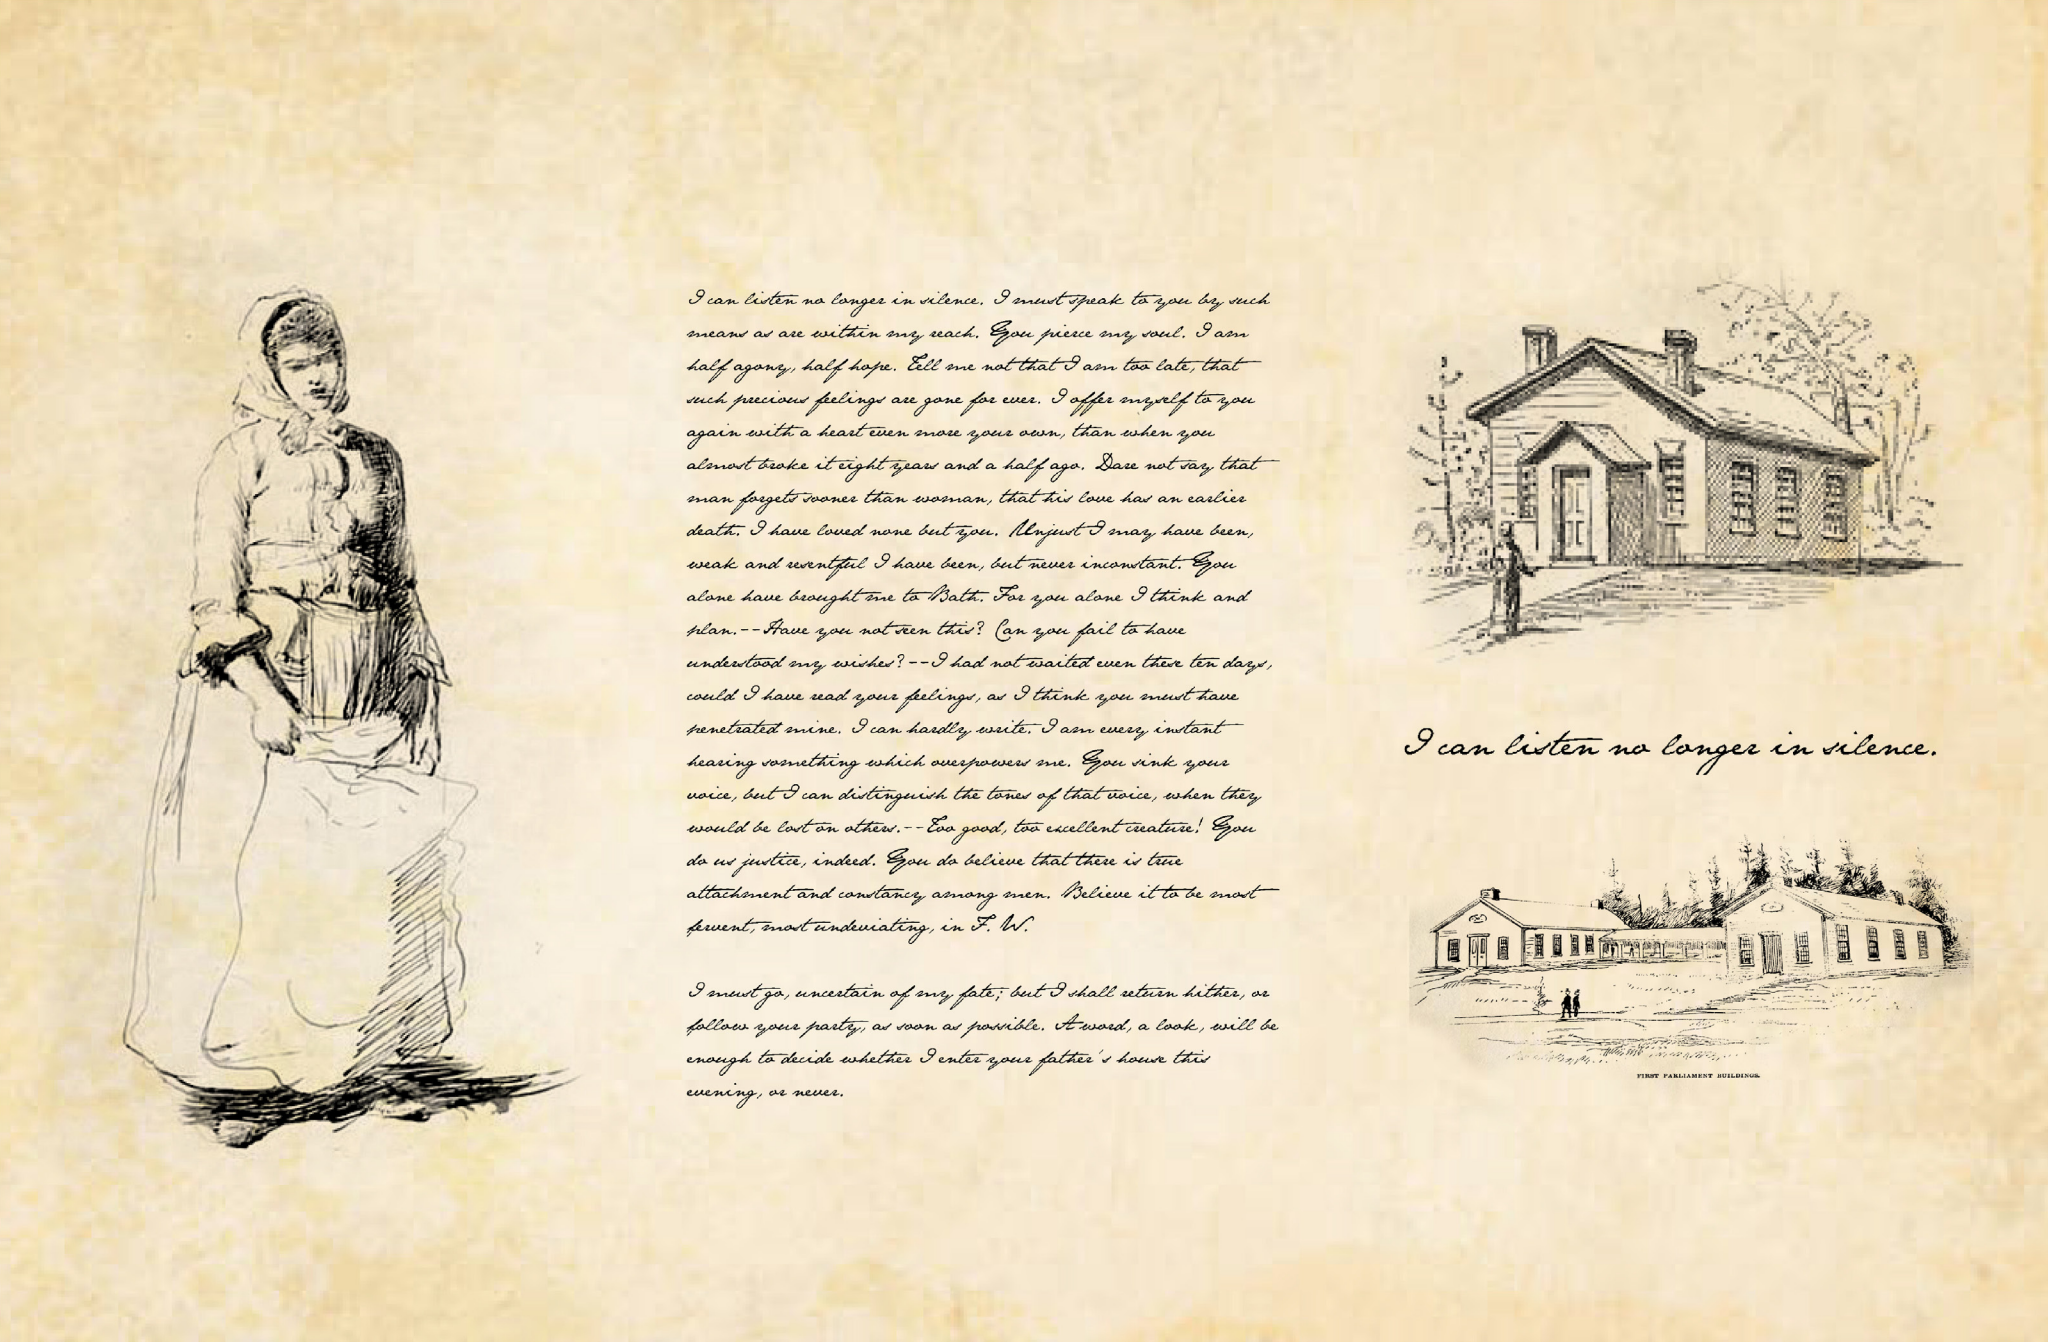 I can listen no longer in silence. I must speak to you by such
means as are within my reach. You pierce my soul. I am
half agony, half hope. Tell me not that I am too late, that
such precious feelings are gone for ever. I offer myself to you
again with a heart even more your own, than when you
almost broke it eight years and a half ago. Dare not say that
man forgets sooner than woman, that his love has an earlier
death. I have loved none but you. Unjust I may have been,
weak and resentful I have been, but never inconstant. You
alone have brought me to Bath. For you alone I think and
plan.--Have you not seen this? Can you fail to have
understood my wishes?--I had not waited even these ten days,
could I have read your feelings, as I think you must have
penetrated mine. I can hardly write. I am every instant
hearing something which overpowers me. You sink your
voice, but I can distinguish the tones of that voice, when they
would be lost on others.--Too good, too excellent creature! You
do us justice, indeed. You do believe that there is true
attachment and constancy among men. Believe it to be most
fervent, most undeviating, in F. W.
I must go, uncertain of my fate; but I shall return hither, or
follow your party, as soon as possible. A word, a look, will be
enough to decide whether I enter your father's house this
evening, or never.
I can listen no longer in silence.
FIRST PARLIAMENT BUILDINGS.